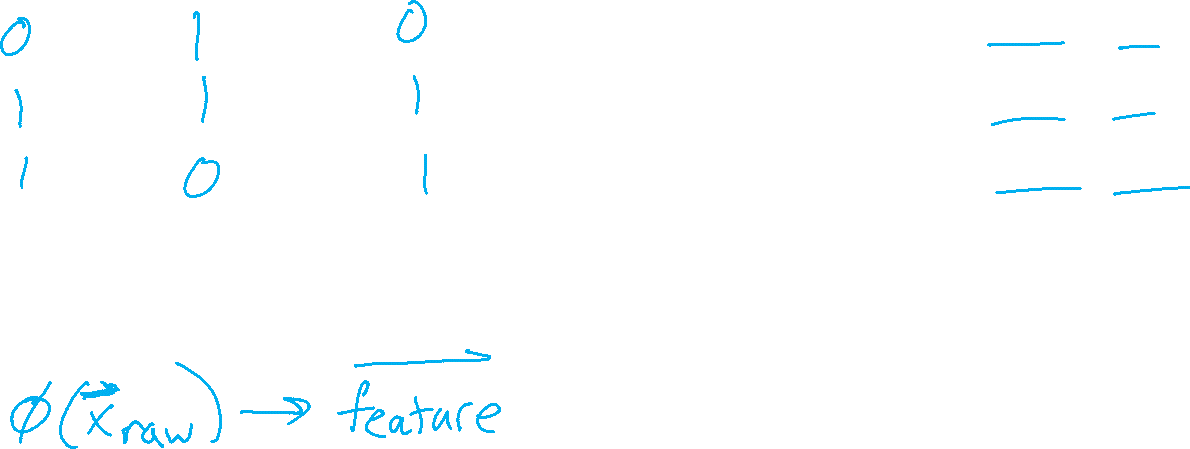 0 1 0
1 1 1
1 0 1
ϕ(x⃗raw) → feature